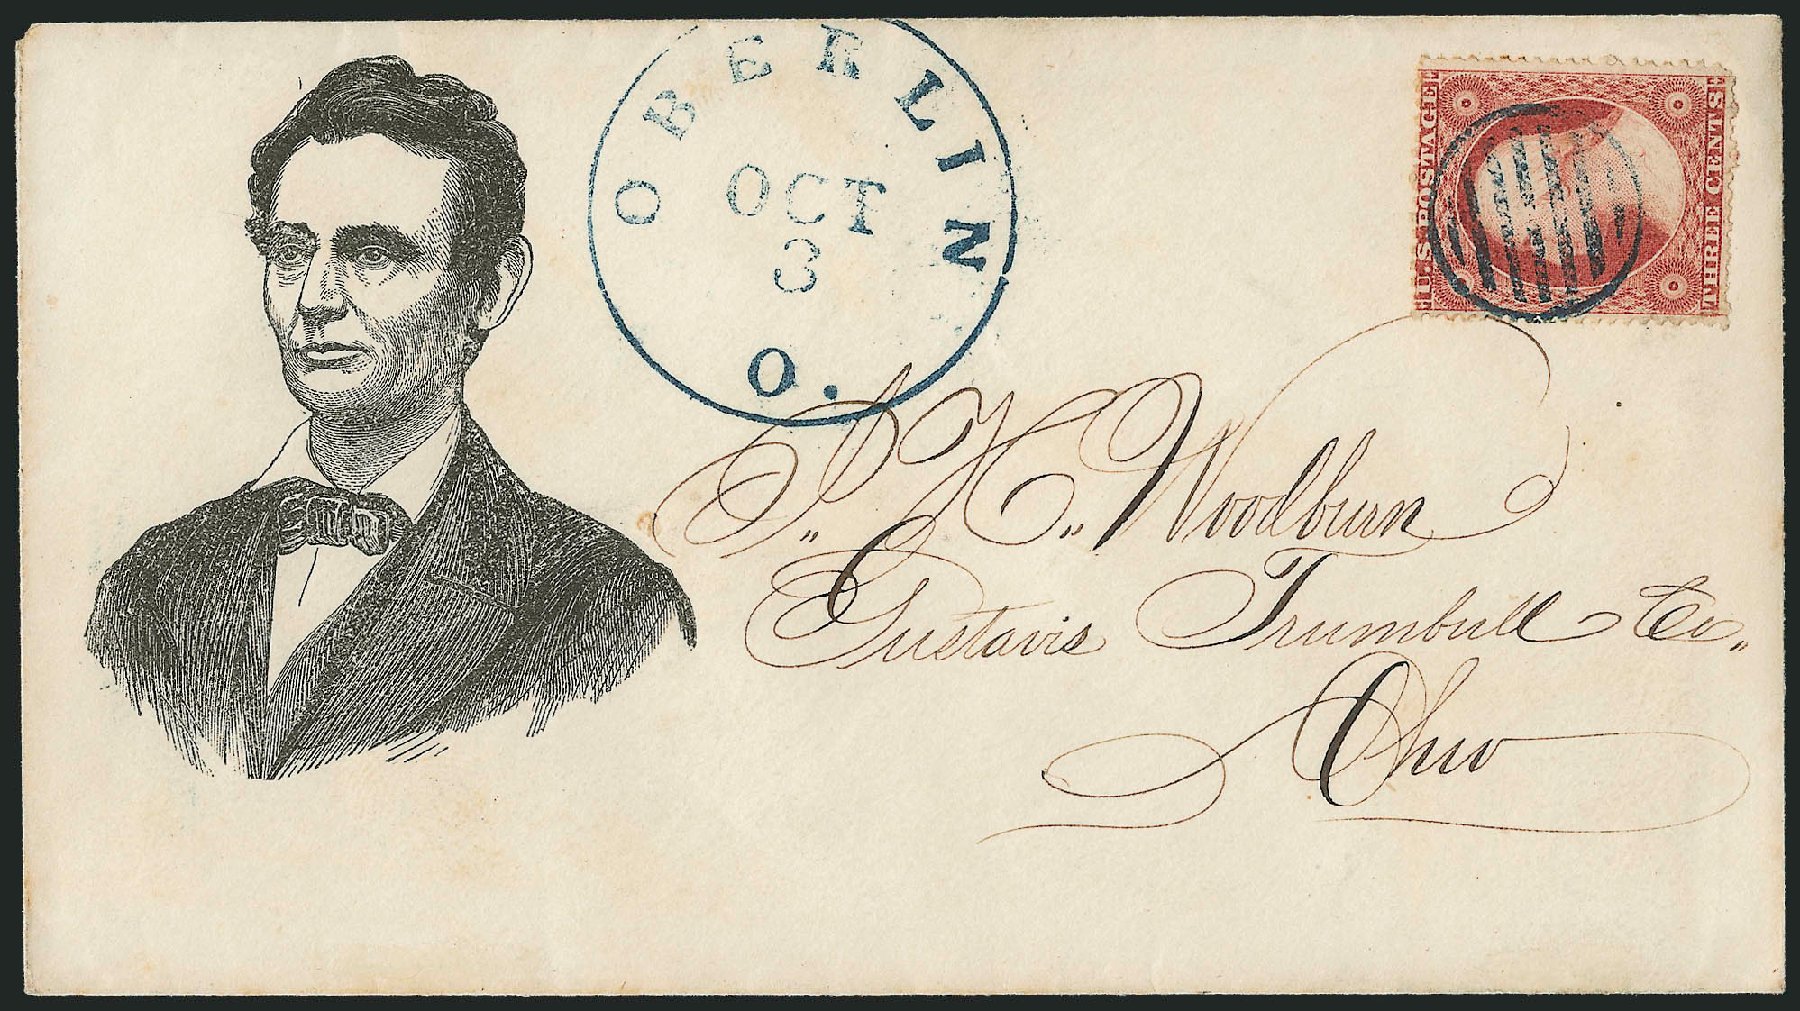 OBERLIN
OCT
3
O.
U.S. POSTAGE
THREE CENTS
S. H. Woodburn
Gustavis Trumbull Co.
Ohio